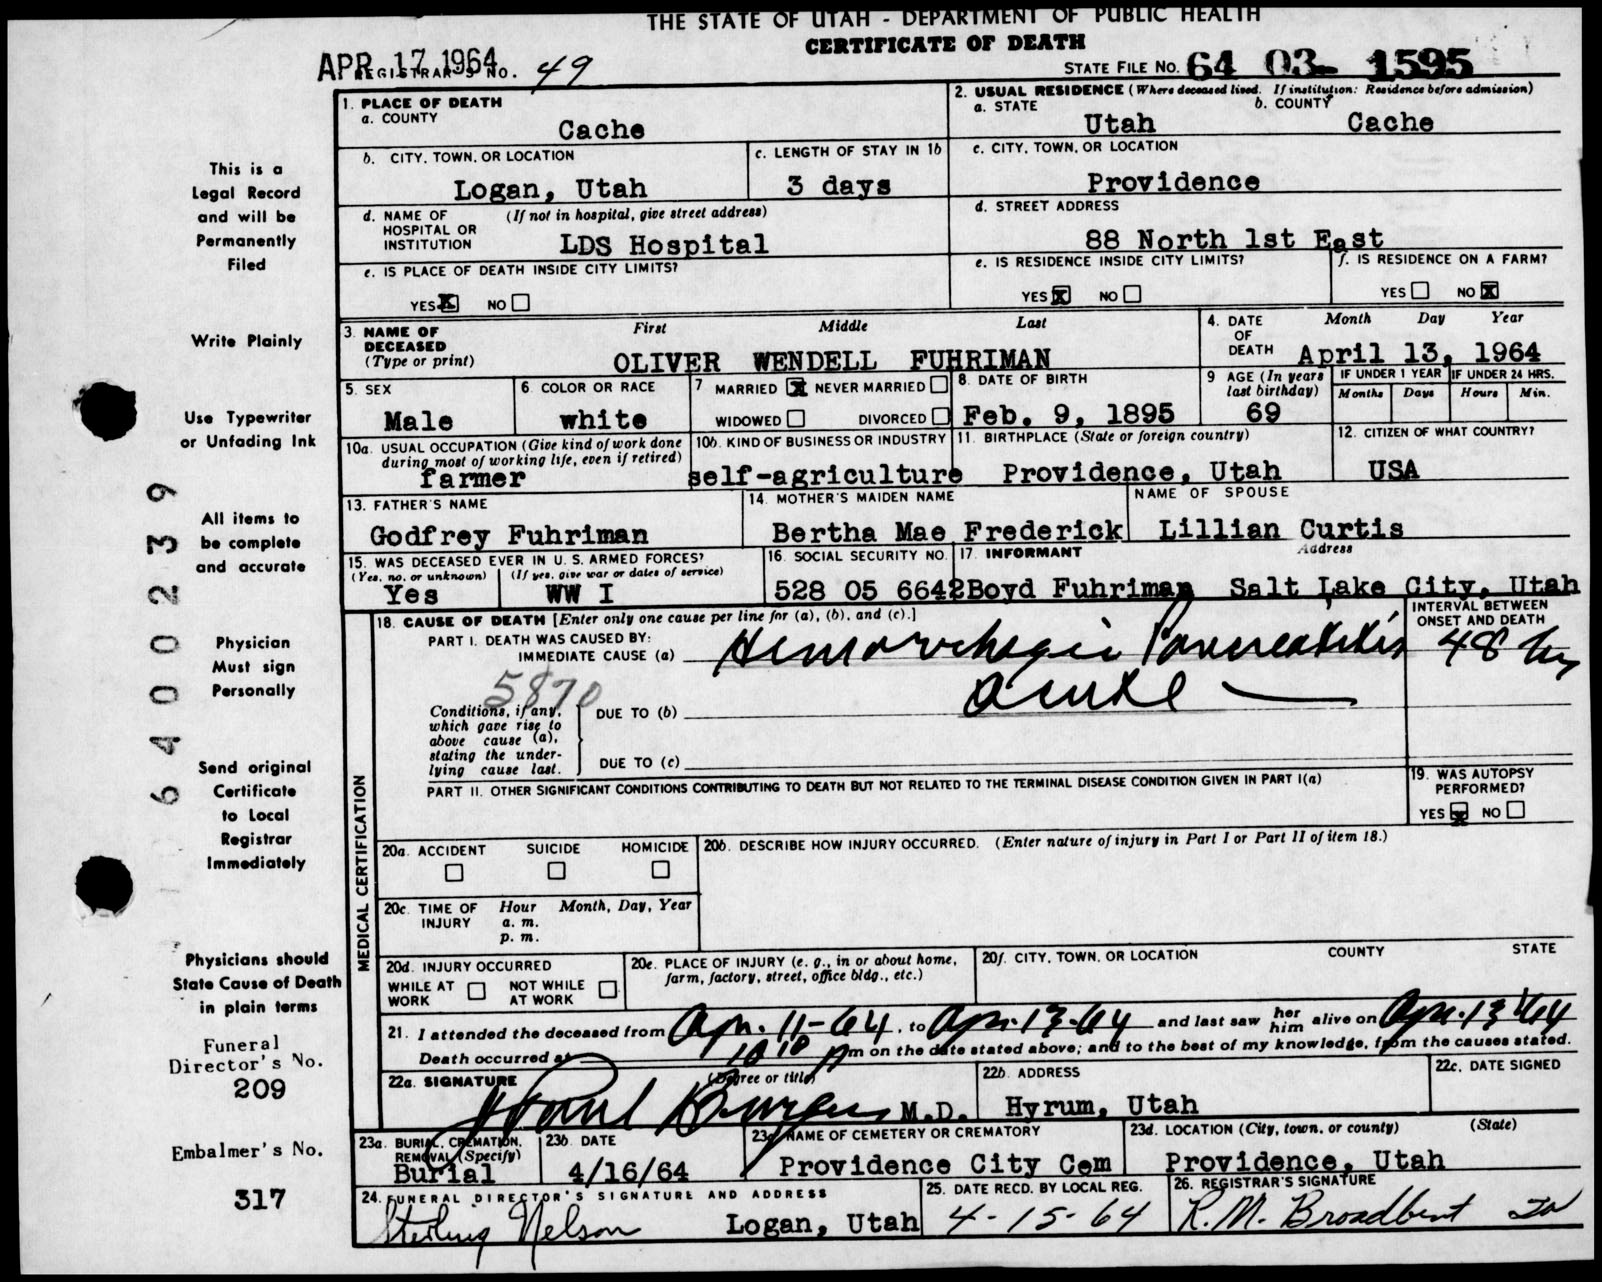 THE STATE OF UTAH - DEPARTMENT OF PUBLIC HEALTH
CERTIFICATE OF DEATH
APR 17 1964
REGISTRAR'S NO. 49
STATE FILE NO. 64 03- 1595
This is a
Legal Record
and will be
Permanently
Filed
Write Plainly
Use Typewriter
or Unfading Ink
All items to
be complete
and accurate
Physician
Must sign
Personally
Send original
Certificate
to Local
Registrar
Immediately
Physicians should
State Cause of Death
in plain terms
Funeral
Director's No.
209
Embalmer's No.
317
6400239
1. PLACE OF DEATH
a. COUNTY
Cache
2. USUAL RESIDENCE (Where deceased lived. If institution: Residence before admission)
a. STATE b. COUNTY
Utah Cache
b. CITY, TOWN, OR LOCATION
Logan, Utah
c. LENGTH OF STAY IN 1b
3 days
c. CITY, TOWN, OR LOCATION
Providence
d. NAME OF (If not in hospital, give street address)
HOSPITAL OR
INSTITUTION LDS Hospital
d. STREET ADDRESS
88 North 1st East
e. IS PLACE OF DEATH INSIDE CITY LIMITS?
YES X NO
e. IS RESIDENCE INSIDE CITY LIMITS?
YES X NO
f. IS RESIDENCE ON A FARM?
YES NO X
3. NAME OF First Middle Last
DECEASED
(Type or print) OLIVER WENDELL FUHRIMAN
4. DATE Month Day Year
OF
DEATH April 13, 1964
5. SEX
Male
6. COLOR OR RACE
white
7 MARRIED X NEVER MARRIED
WIDOWED DIVORCED
8. DATE OF BIRTH
Feb. 9, 1895
9 AGE (In years
last birthday)
69
IF UNDER 1 YEAR IF UNDER 24 HRS.
Months Days Hours Min.
10a. USUAL OCCUPATION (Give kind of work done
during most of working life, even if retired)
farmer
10b. KIND OF BUSINESS OR INDUSTRY
self-agriculture
11. BIRTHPLACE (State or foreign country)
Providence, Utah
12. CITIZEN OF WHAT COUNTRY?
USA
13. FATHER'S NAME
Godfrey Fuhriman
14. MOTHER'S MAIDEN NAME
Bertha Mae Frederick
NAME OF SPOUSE
Lillian Curtis
15. WAS DECEASED EVER IN U. S. ARMED FORCES?
(Yes, no, or unknown) (If yes, give war or dates of service)
Yes WW I
16. SOCIAL SECURITY NO.
528 05 6642
17. INFORMANT Address
Boyd Fuhriman Salt Lake City, Utah
MEDICAL CERTIFICATION
18. CAUSE OF DEATH [Enter only one cause per line for (a), (b), and (c).]
INTERVAL BETWEEN
ONSET AND DEATH
PART I. DEATH WAS CAUSED BY:
IMMEDIATE CAUSE (a) Hemorrhagic Pancreatitis 48 hrs
acute
5870
Conditions, if any,
which gave rise to
above cause (a),
stating the under-
lying cause last.
DUE TO (b)
DUE TO (c)
PART II. OTHER SIGNIFICANT CONDITIONS CONTRIBUTING TO DEATH BUT NOT RELATED TO THE TERMINAL DISEASE CONDITION GIVEN IN PART I(a)
19. WAS AUTOPSY
PERFORMED?
YES X NO
20a. ACCIDENT SUICIDE HOMICIDE
20b. DESCRIBE HOW INJURY OCCURRED. (Enter nature of injury in Part I or Part II of item 18.)
20c. TIME OF Hour Month, Day, Year
INJURY a. m.
p. m.
20d. INJURY OCCURRED
WHILE AT NOT WHILE
WORK AT WORK
20e. PLACE OF INJURY (e. g., in or about home,
farm, factory, street, office bldg., etc.)
20f. CITY, TOWN, OR LOCATION COUNTY STATE
21. I attended the deceased from Apr. 11-64, to Apr. 13-64 and last saw her him alive on Apr. 13 '64
Death occurred at 10 10 Pm on the date stated above; and to the best of my knowledge, from the causes stated.
22a. SIGNATURE (Degree or title)
M.D.
22b. ADDRESS
Hyrum, Utah
22c. DATE SIGNED
23a. BURIAL, CREMATION,
REMOVAL (Specify)
Burial
23b. DATE
4/16/64
23c. NAME OF CEMETERY OR CREMATORY
Providence City Cem
23d. LOCATION (City, town, or county) (State)
Providence, Utah
24. FUNERAL DIRECTOR'S SIGNATURE AND ADDRESS
Sterling Nelson Logan, Utah
25. DATE RECD. BY LOCAL REG.
4-15-64
26. REGISTRAR'S SIGNATURE
R. M. Broadbent